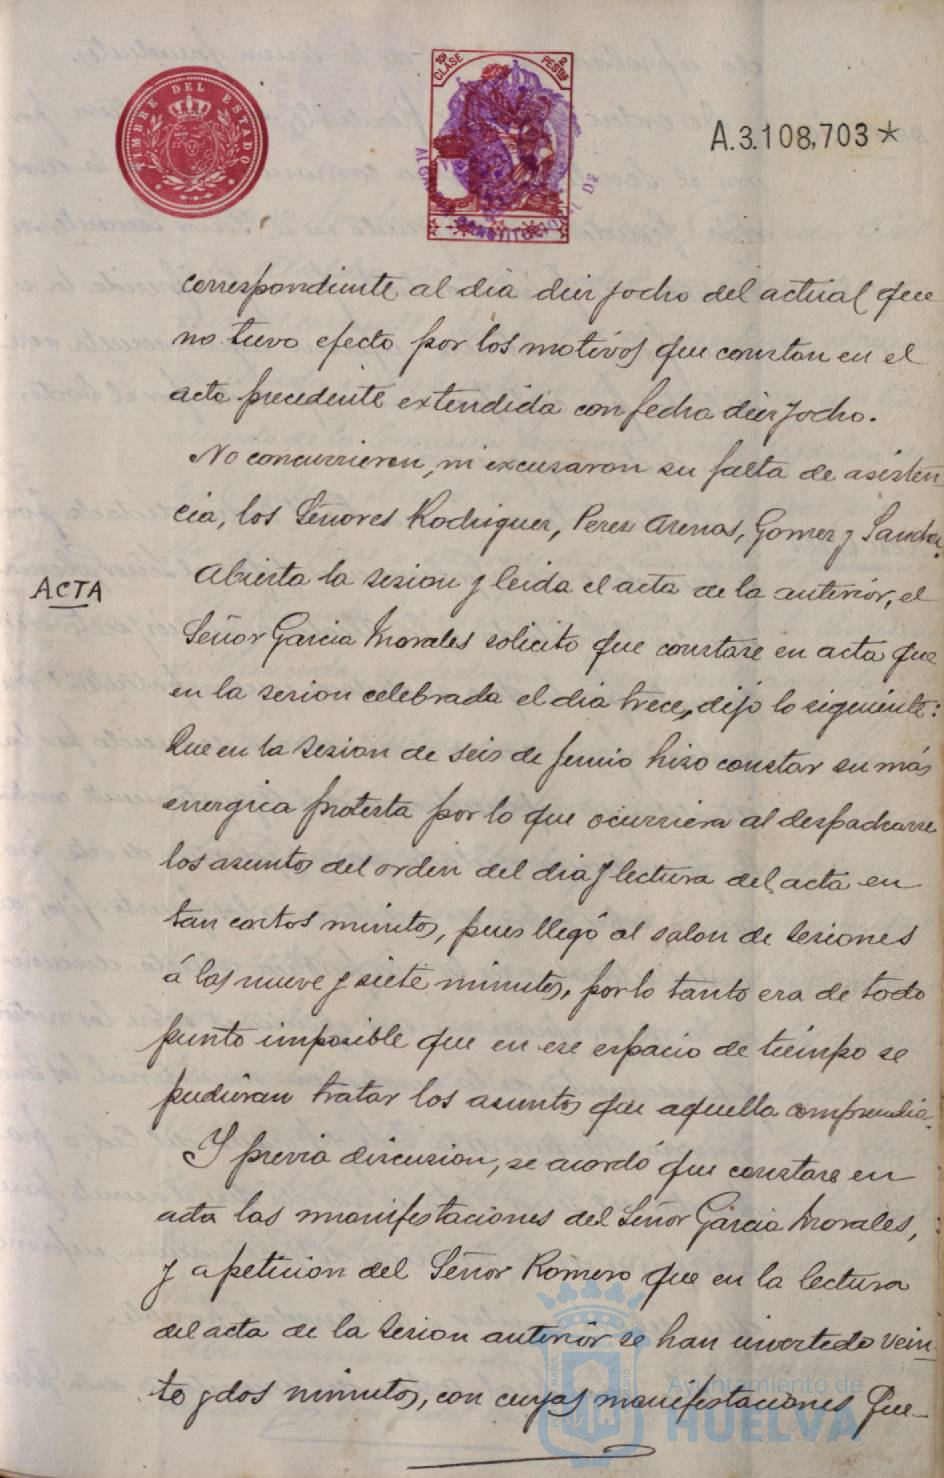 TIMBRE DEL ESTADO
10ª CLASE
2 PESTAS
A.3.108,703*
correspondiente al dia diez y ocho del actual que
no tuvo efecto por los motivos que constan en el
acta precedente extendida con fecha diez y ocho.
No concurrieron, ni excusaron su falta de asisten-
cia, los Señores Rodriguez, Perez Arenas, Gomez y
ACTA
Abierta la sesion y leida el acta de la anterior, el
Señor Garcia Morales solicito que constase en acta que
en la sesion celebrada el dia trece, dijo lo siguiente:
Que en la sesion de seis de Junio hizo constar su más
energica protesta por lo que ocurriera al despacharse
los asuntos del orden del dia y lectura del acta en
tan cortos minutos, pues llegó al salon de sesiones
á las nueve y siete minutos, por lo tanto era de todo
punto imposible que en ese espacio de tiempo se
pudieran tratar los asuntos que aquella comprendia.
Y previa discusion, se acordó que constase en
acta las manifestaciones del Señor Garcia Morales,
y a peticion del Señor Romero que en la lectura
del acta de la sesion anterior se han invertido vein-
te y dos minutos, con cuyas manifestaciones que-
Ayuntamiento de
HUELVA